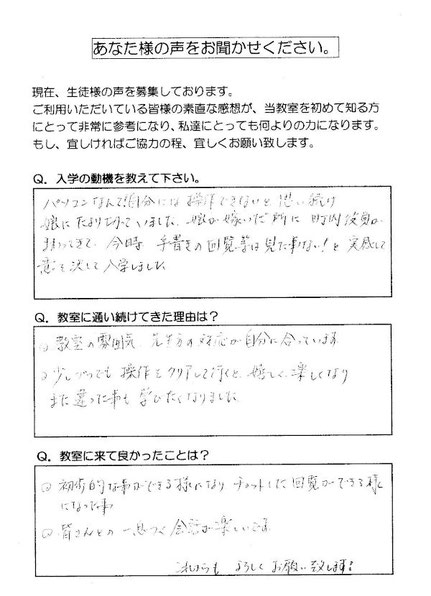 あなた様の声をお聞かせください。
現在、生徒様の声を募集しております。
ご利用いただいている皆様の素直な感想が、当教室を初めて知る方
にとって非常に参考になり、私達にとっても何よりの力になります。
もし、宜しければご協力の程、宜しくお願い致します。
Q．入学の動機を教えて下さい。
パソコンなんて自分には操作できないと思い続け
娘にたよりきっていました。娘が嫁いだ所に町内役員が
まわってきて、今時 手書きの回覧等は見た事ない！と実感して
意を決して入学しました
Q．教室に通い続けてきた理由は？
教室の雰囲気 先生方の対応が自分に合っている
少しづつでも 操作をクリアして行くと、嬉しく、楽しくなり
また違った事も 学びたくなりました
Q．教室に来て良かったことは？
初歩的な事ができる様になり チョットした回覧ができる様に
になった事
皆さんとの 一息つく 会話が楽しいです
これからも よろしく お願い致します！